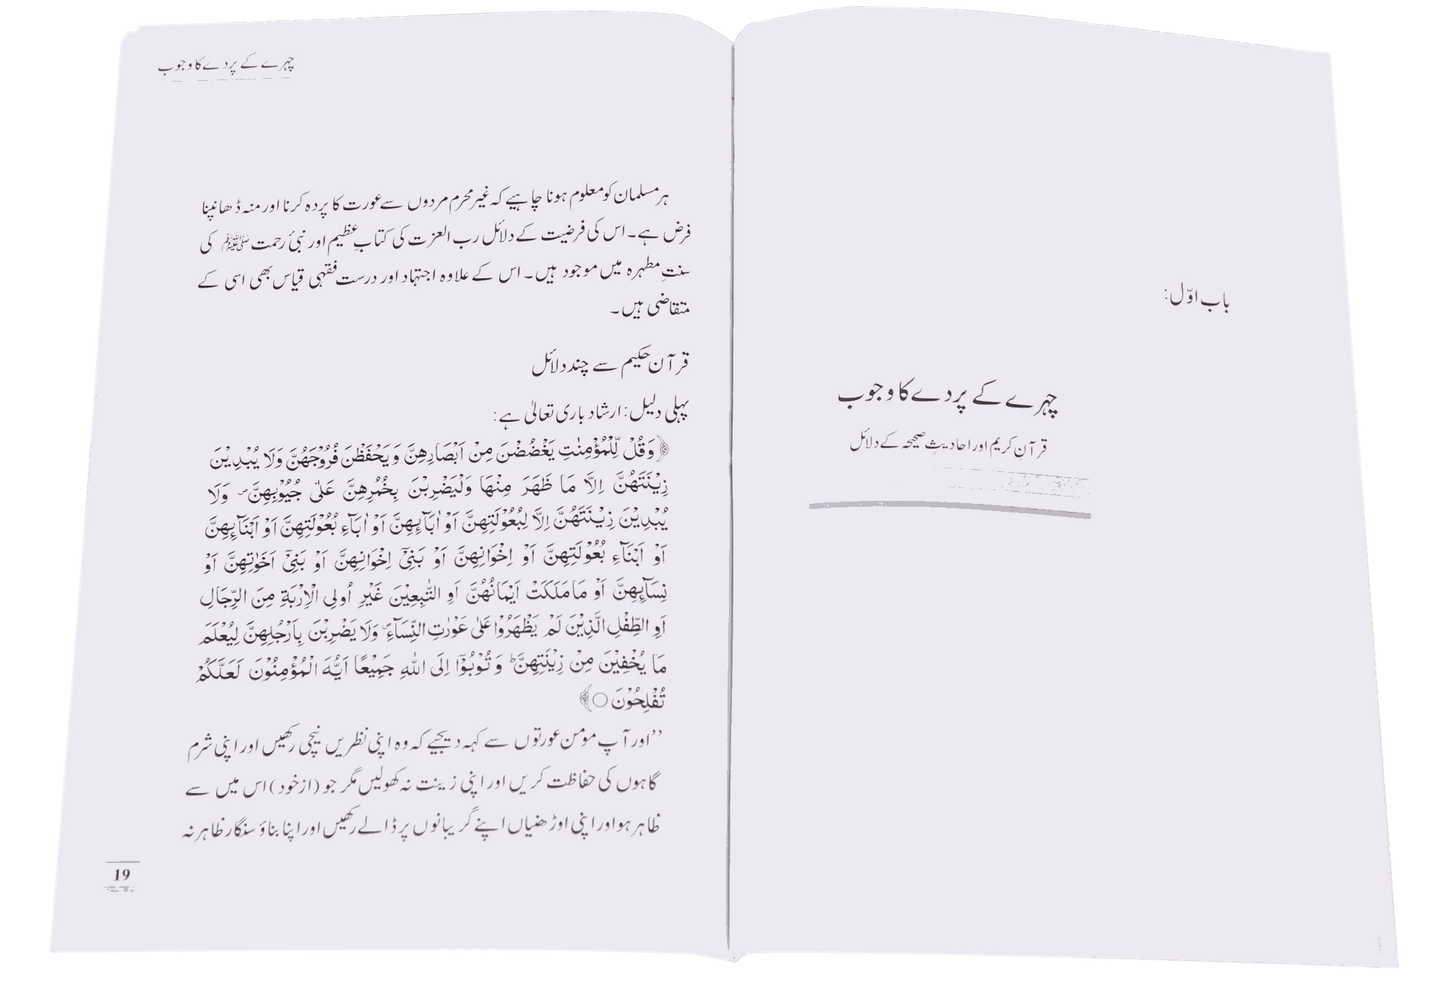 باب اوّل:
چہرے کے پردے کا وجوب
قرآنِ کریم اور احادیثِ صحیحہ کے دلائل
چہرے کے پردے کا وجوب
ہر مسلمان کو معلوم ہونا چاہیے کہ غیر محرم مردوں سے عورت کا پردہ کرنا اور منہ ڈھانپنا
فرض ہے۔ اس کی فرضیت کے دلائل رب العزت کی کتابِ عظیم اور نبیٔ رحمت ﷺ کی
سنتِ مطہرہ میں موجود ہیں۔ اس کے علاوہ اجتہاد اور درست فقہی قیاس بھی اسی کے
متقاضی ہیں۔
قرآن حکیم سے چند دلائل
پہلی دلیل: ارشاد باری تعالیٰ ہے:
﴿وَقُلْ لِّلْمُؤْمِنٰتِ يَغْضُضْنَ مِنْ اَبْصَارِهِنَّ وَيَحْفَظْنَ فُرُوْجَهُنَّ وَلَا يُبْدِيْنَ
زِيْنَتَهُنَّ اِلَّا مَا ظَهَرَ مِنْهَا وَلْيَضْرِبْنَ بِخُمُرِهِنَّ عَلٰى جُيُوْبِهِنَّ ۪ وَلَا
يُبْدِيْنَ زِيْنَتَهُنَّ اِلَّا لِبُعُوْلَتِهِنَّ اَوْ اٰبَآىِٕهِنَّ اَوْ اٰبَآءِ بُعُوْلَتِهِنَّ اَوْ اَبْنَآىِٕهِنَّ
اَوْ اَبْنَآءِ بُعُوْلَتِهِنَّ اَوْ اِخْوَانِهِنَّ اَوْ بَنِيْٓ اِخْوَانِهِنَّ اَوْ بَنِيْٓ اَخَوٰتِهِنَّ اَوْ
نِسَآىِٕهِنَّ اَوْ مَا مَلَكَتْ اَيْمَانُهُنَّ اَوِ التّٰبِعِيْنَ غَيْرِ اُولِى الْاِرْبَةِ مِنَ الرِّجَالِ
اَوِ الطِّفْلِ الَّذِيْنَ لَمْ يَظْهَرُوْا عَلٰى عَوْرٰتِ النِّسَآءِ ۪ وَلَا يَضْرِبْنَ بِاَرْجُلِهِنَّ لِيُعْلَمَ
مَا يُخْفِيْنَ مِنْ زِيْنَتِهِنَّ ؕ وَتُوْبُوْٓا اِلَى اللّٰهِ جَمِيْعًا اَيُّهَ الْمُؤْمِنُوْنَ لَعَلَّكُمْ
تُفْلِحُوْنَ ○﴾
’’اور آپ مؤمن عورتوں سے کہہ دیجیے کہ وہ اپنی نظریں نیچی رکھیں اور اپنی شرم
گاہوں کی حفاظت کریں اور اپنی زینت نہ کھولیں مگر جو (از خود) اس میں سے
ظاہر ہو اور اپنی اوڑھنیاں اپنے گریبانوں پر ڈالے رکھیں اور اپنا بناؤ سنگار ظاہر نہ
19